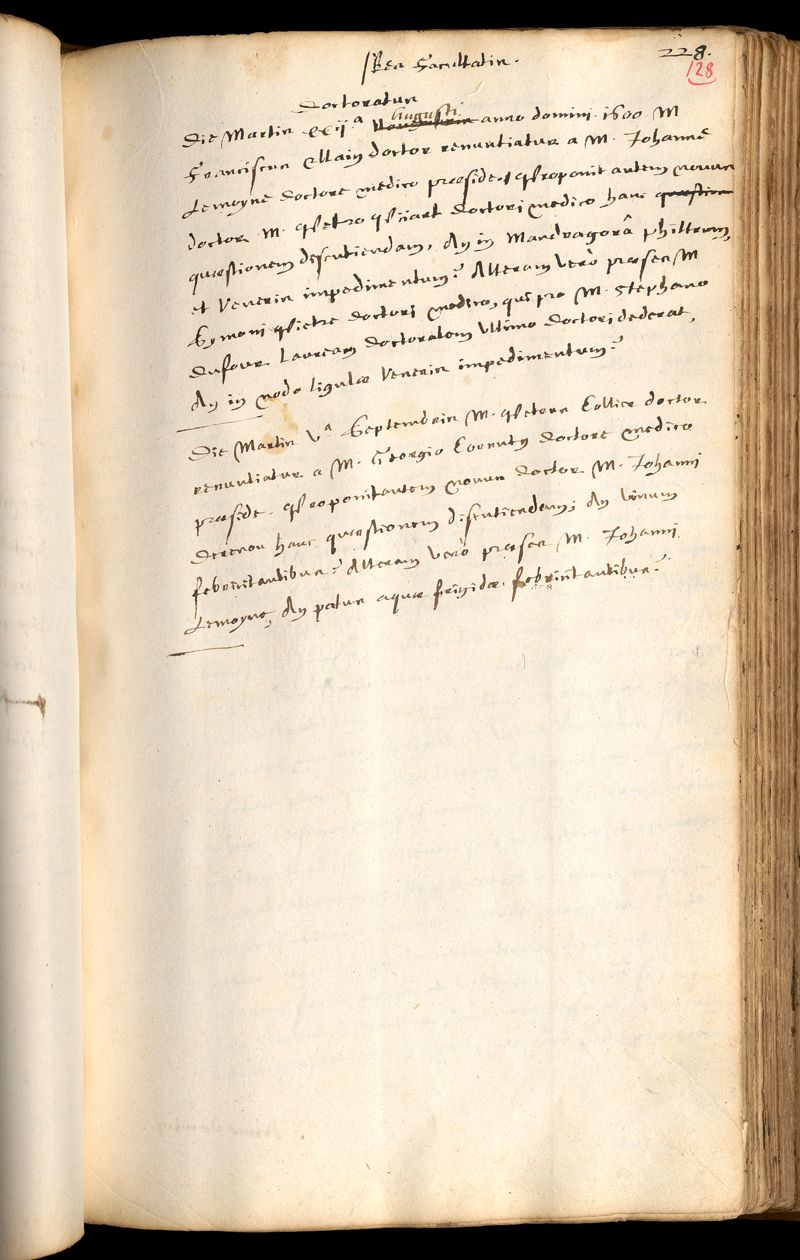 Res Facultatis.
228.
128
Doctoratus
Augusti
Die Martis xxij.a anno domini 1600. M
Franciscus Allain doctor renuntiatur a M. Johanne
Lemoyne doctore medico præside. Proponit autem novus
doctor M. Petro Piiart doctori medico hanc quæstion
quæstionem discutiendam, An in Mandragorâ philtrum,
et Veneris impedimentum? Alteram verò præses M
Symoni Pietre doctori medico, qui pro M. Stephano
Dufour Lauream doctoralem ultimo doctori dederat,
An in nodo ligulæ Veneris impedimentum?
Die Martis Va Septembris M. Petrus Collier doctor
renuntiatur a M. Georgio Cornuty doctore medico
præside. Proponit autem novus doctor M. Johanni
Derenou hanc quæstionem discutiendam; An vinum
febricitantibus? Alteram verò præses M. Johanni
Lemoyne, An potus aquæ frigidæ febricitantibus?